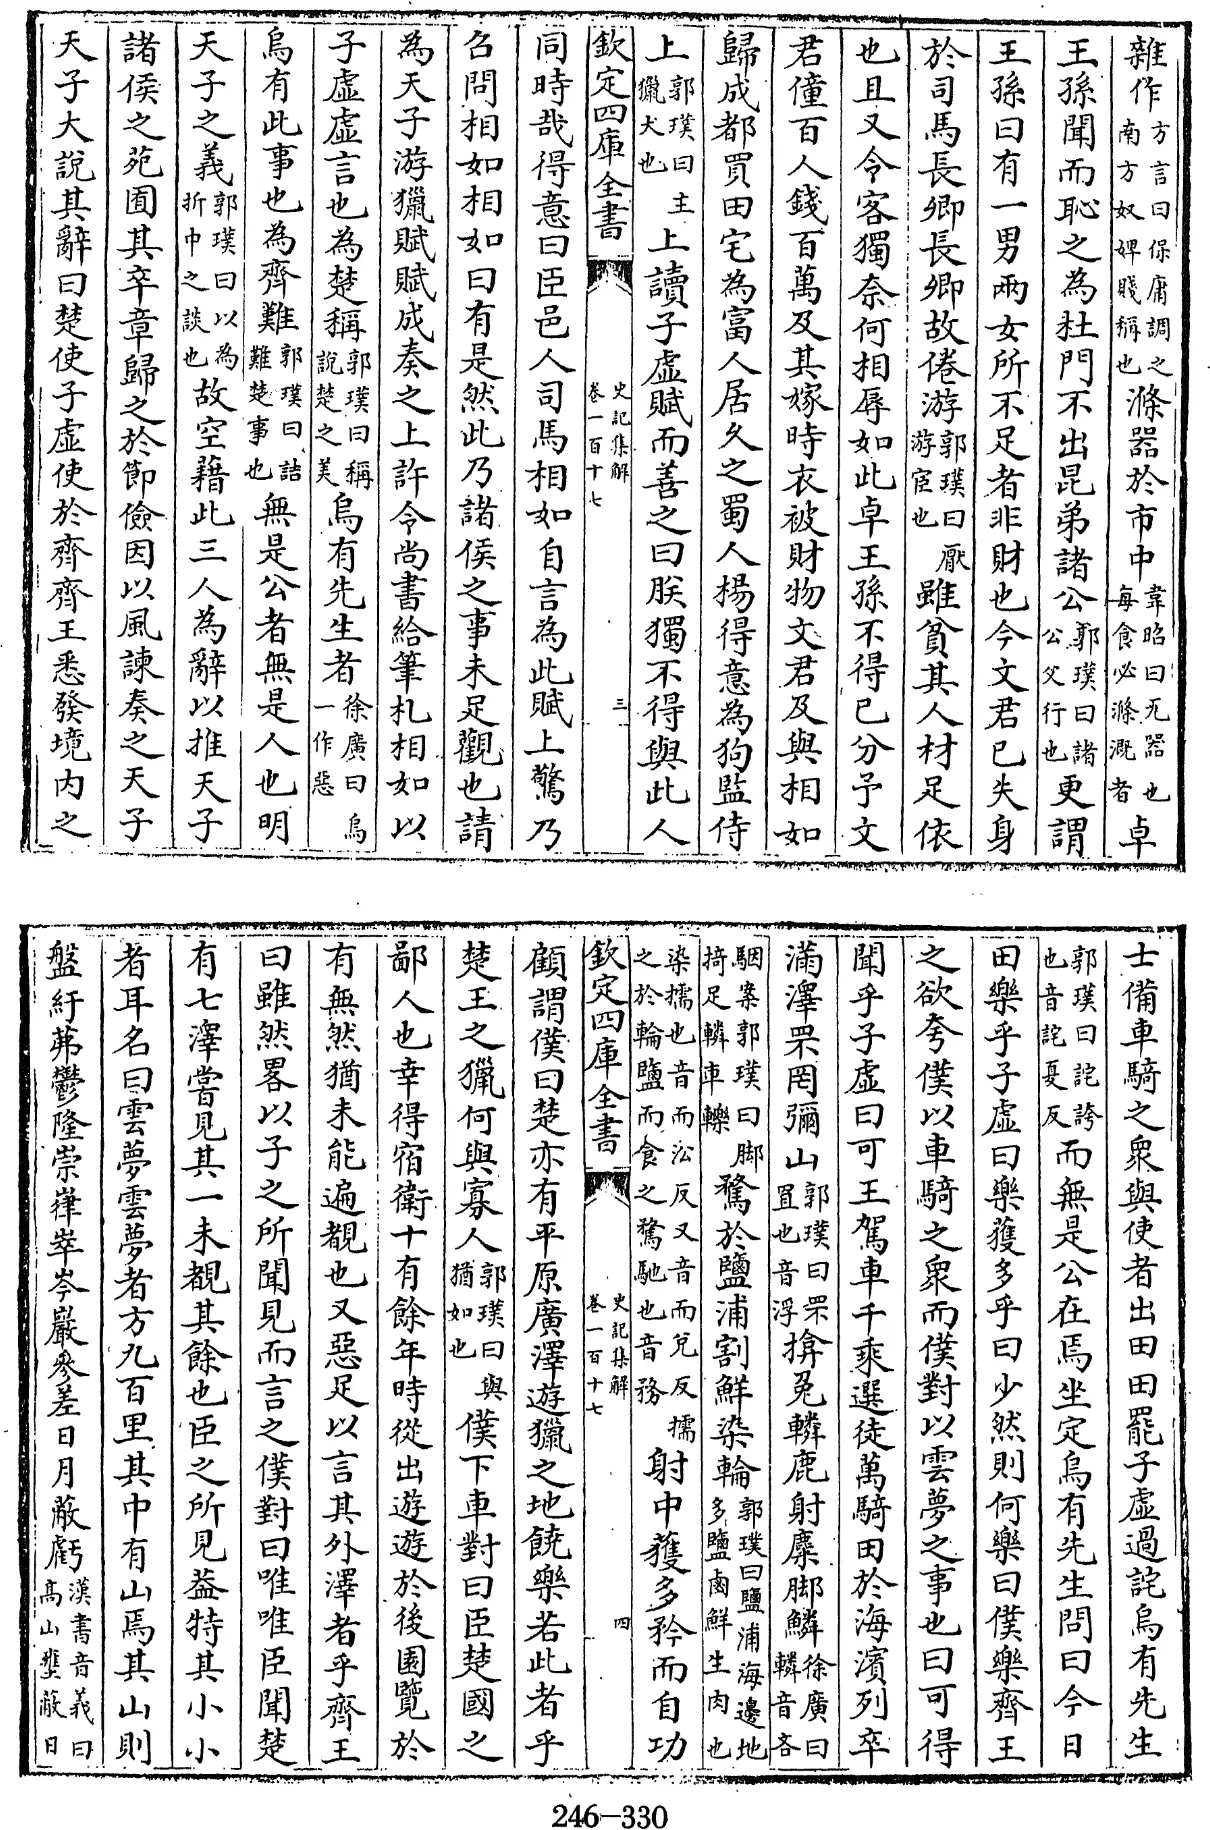 雜作方言曰保庸謂之南方奴婢賤稱也滌器於市中韋昭曰瓦器也每食必滌溉者卓
王孫聞而恥之為杜門不出昆弟諸公郭璞曰諸公父行也更謂
王孫曰有一男兩女所不足者非財也今文君已失身
於司馬長卿長卿故倦游郭璞曰厭游宦也雖貧其人材足依
也且又令客獨奈何相辱如此卓王孫不得已分予文
君僮百人錢百萬及其嫁時衣被財物文君乃與相如
歸成都買田宅為富人居久之蜀人楊得意為狗監侍
上郭璞曰主獵犬也上讀子虛賦而善之曰朕獨不得與此人
欽定四庫全書 史記集解卷一百十七 三
同時哉得意曰臣邑人司馬相如自言為此賦上驚乃
召問相如相如曰有是然此乃諸侯之事未足觀也請
為天子游獵賦賦成奏之上許令尚書給筆札相如以
子虛虛言也為楚稱郭璞曰稱說楚之美烏有先生者徐廣曰烏一作惡
烏有此事也為齊難郭璞曰詰難楚事也無是公者無是人也明
天子之義郭璞曰以為折中之談也故空藉此三人為辭以推天子
諸侯之苑囿其卒章歸之於節儉因以風諫奏之天子
天子大說其辭曰楚使子虛使於齊齊王悉發境內之
士備車騎之衆與使者出田田罷子虛過詫烏有先生
郭璞曰詫誇也音託夏反而無是公在焉坐定烏有先生問曰今日
田樂乎子虛曰樂獲多乎曰少然則何樂曰僕樂齊王
之欲夸僕以車騎之衆而僕對以雲夢之事也曰可得
聞乎子虛曰可王駕車千乘選徒萬騎田於海濱列卒
滿澤罘罔彌山郭璞曰罘罝也音浮揜兔轔鹿射麋腳麟徐廣曰轔音吝
駰案郭璞曰腳掎足轔車轢騖於鹽浦割鮮染輪郭璞曰鹽浦海邊地多鹽鹵鮮生肉也
染擩也音而沇反又音而兗反擩之於輪鹽而食之騖馳也音務射中獲多矜而自功
欽定四庫全書 史記集解卷一百十七 四
顧謂僕曰楚亦有平原廣澤遊獵之地饒樂若此者乎
楚王之獵何與寡人郭璞曰與猶如也僕下車對曰臣楚國之
鄙人也幸得宿衛十有餘年時從出遊遊於後園覽於
有無然猶未能遍覩也又惡足以言其外澤者乎齊王
曰雖然畧以子之所聞見而言之僕對曰唯唯臣聞楚
有七澤嘗見其一未覩其餘也臣之所見葢特其小小
者耳名曰雲夢雲夢者方九百里其中有山焉其山則
盤紆茀鬱隆崇嵂崒岑巖參差日月蔽虧漢書音義曰高山壅蔽日
246-330